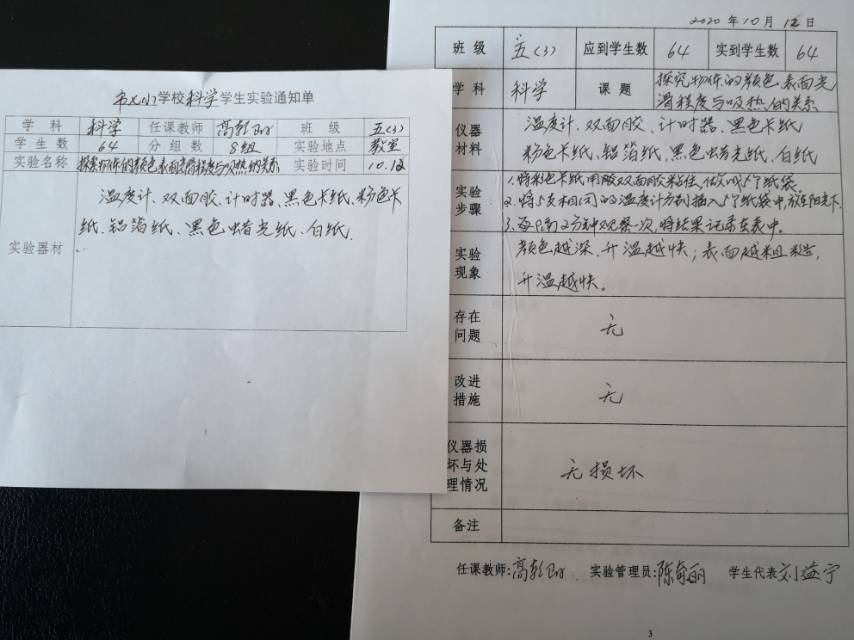 学校科学学生实验通知单
学科 科学 任课教师 班级 五(3)
学生数 64 分组数 8组 实验地点 教室
实验名称 探索物体的颜色表面光滑程度与吸热的关系 实验时间 10.12
实验器材
温度计、双面胶、计时器、黑色卡纸、粉色卡
纸、铝箔纸、黑色蜡光纸、白纸.
2020年10月12日
班级 五(3) 应到学生数 64 实到学生数 64
学科 科学 课题 探究物体的颜色、表面光
滑程度与吸热的关系
仪器材料
温度计、双面胶、计时器、黑色卡纸
粉色卡纸、铝箔纸、黑色蜡光纸、白纸
实验步骤
1.将彩色卡纸用双面胶粘住,做成5个纸袋.
2.将5支相同的温度计分别插入5个纸袋中,放在阳光下.
3.每隔2分钟观察一次,将结果记录在表中.
实验现象
颜色越深,升温越快;表面越粗糙,
升温越快。
存在问题 无
改进措施 无
仪器损坏与处理情况 无损坏
备注
任课教师: 实验管理员: 学生代表 刘益宁
3